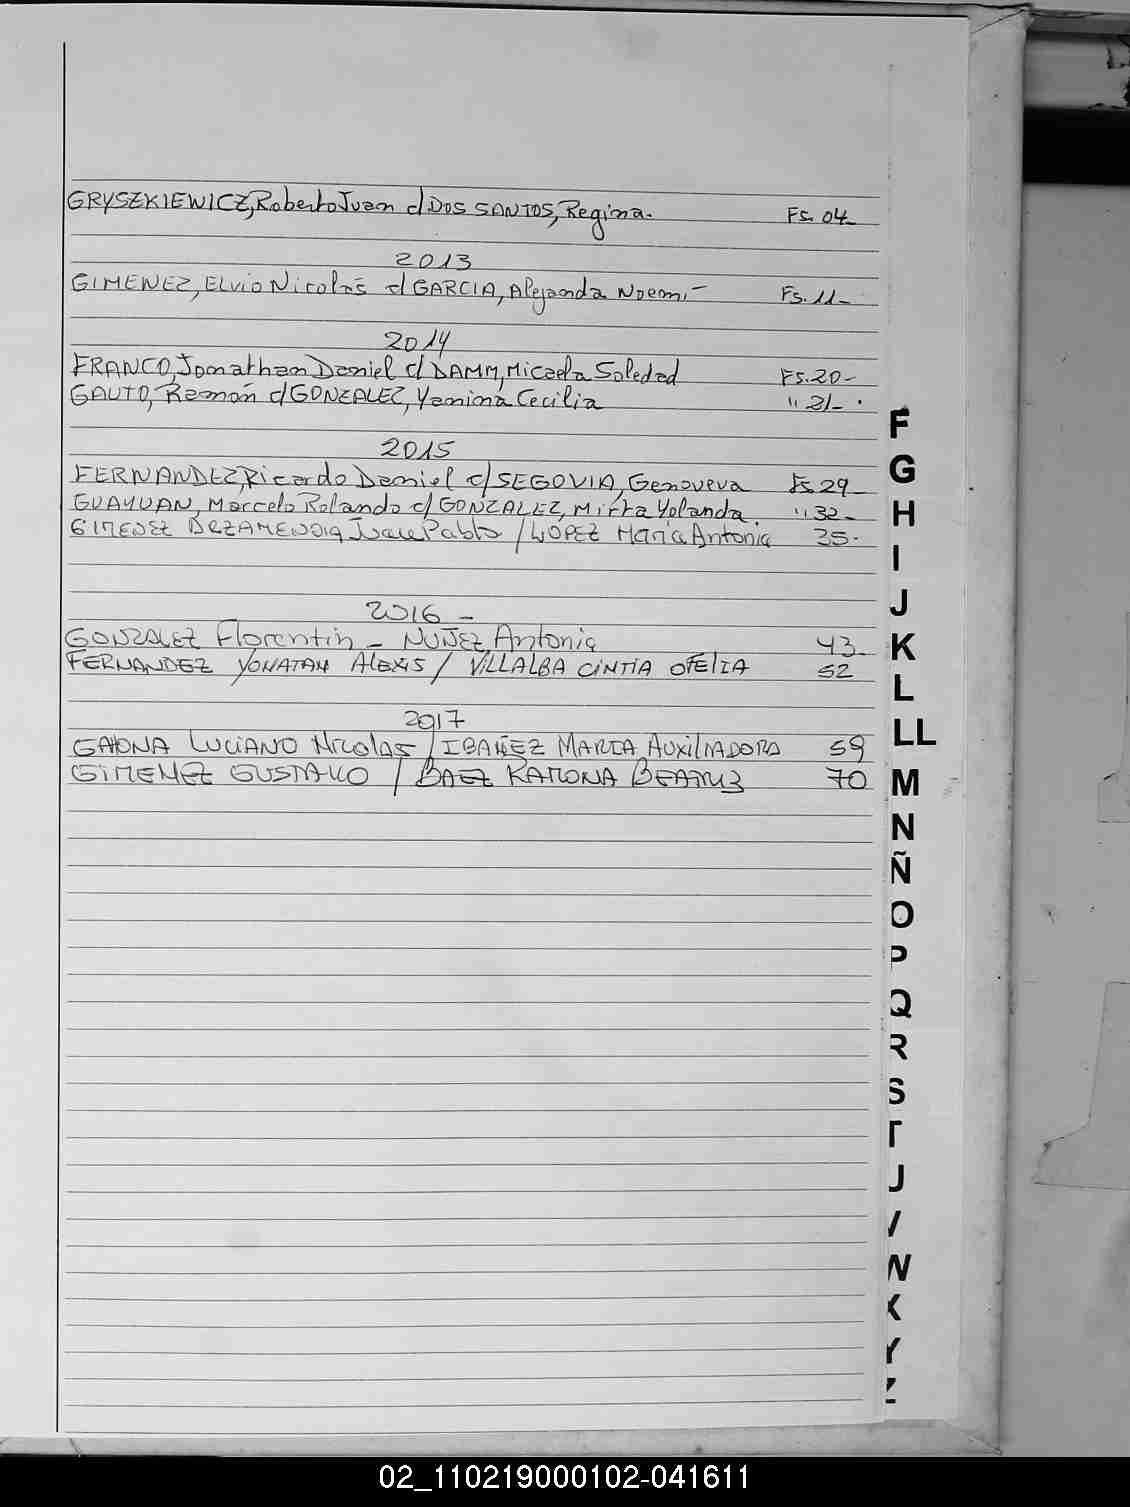 GRYSZKIEWICZ, Roberto Juan c/ DOS SANTOS, Regina. Fs. 04-
2013
GIMENEZ, Elvio Nicolás c/ GARCIA, Alejanda Noemi- Fs. 11-
2014
FRANCO, Jonathan Daniel c/ DAMM, Micaela Soledad Fs. 20-
GAUTO, Ramón c/ GONZALEZ, Yanina Cecilia " 21-
2015
FERNANDEZ, Ricardo Daniel c/ SEGOVIA, Genoveva Fs 29-
GUAYUAN, Marcelo Rolando c/ GONZALEZ, Mirta Yolanda. " 32-
GIMENEZ Juan Pablo / LÓPEZ María Antonia 35-
2016-
GONZALEZ Florentin - NUÑEZ, Antonia 43-
FERNANDEZ YONATAN ALEXIS / VILLALBA CINTIA OFELIA 52
2017
GAONA LUCIANO NICOLAS / IBAÑEZ MARIA AUXILIADORA 59
GIMENEZ GUSTAVO / BAEZ RAMONA BEATRIZ 70
F
G
H
I
J
K
L
LL
M
N
Ñ
O
P
Q
R
S
T
U
V
W
X
Y
Z
02_110219000102-041611